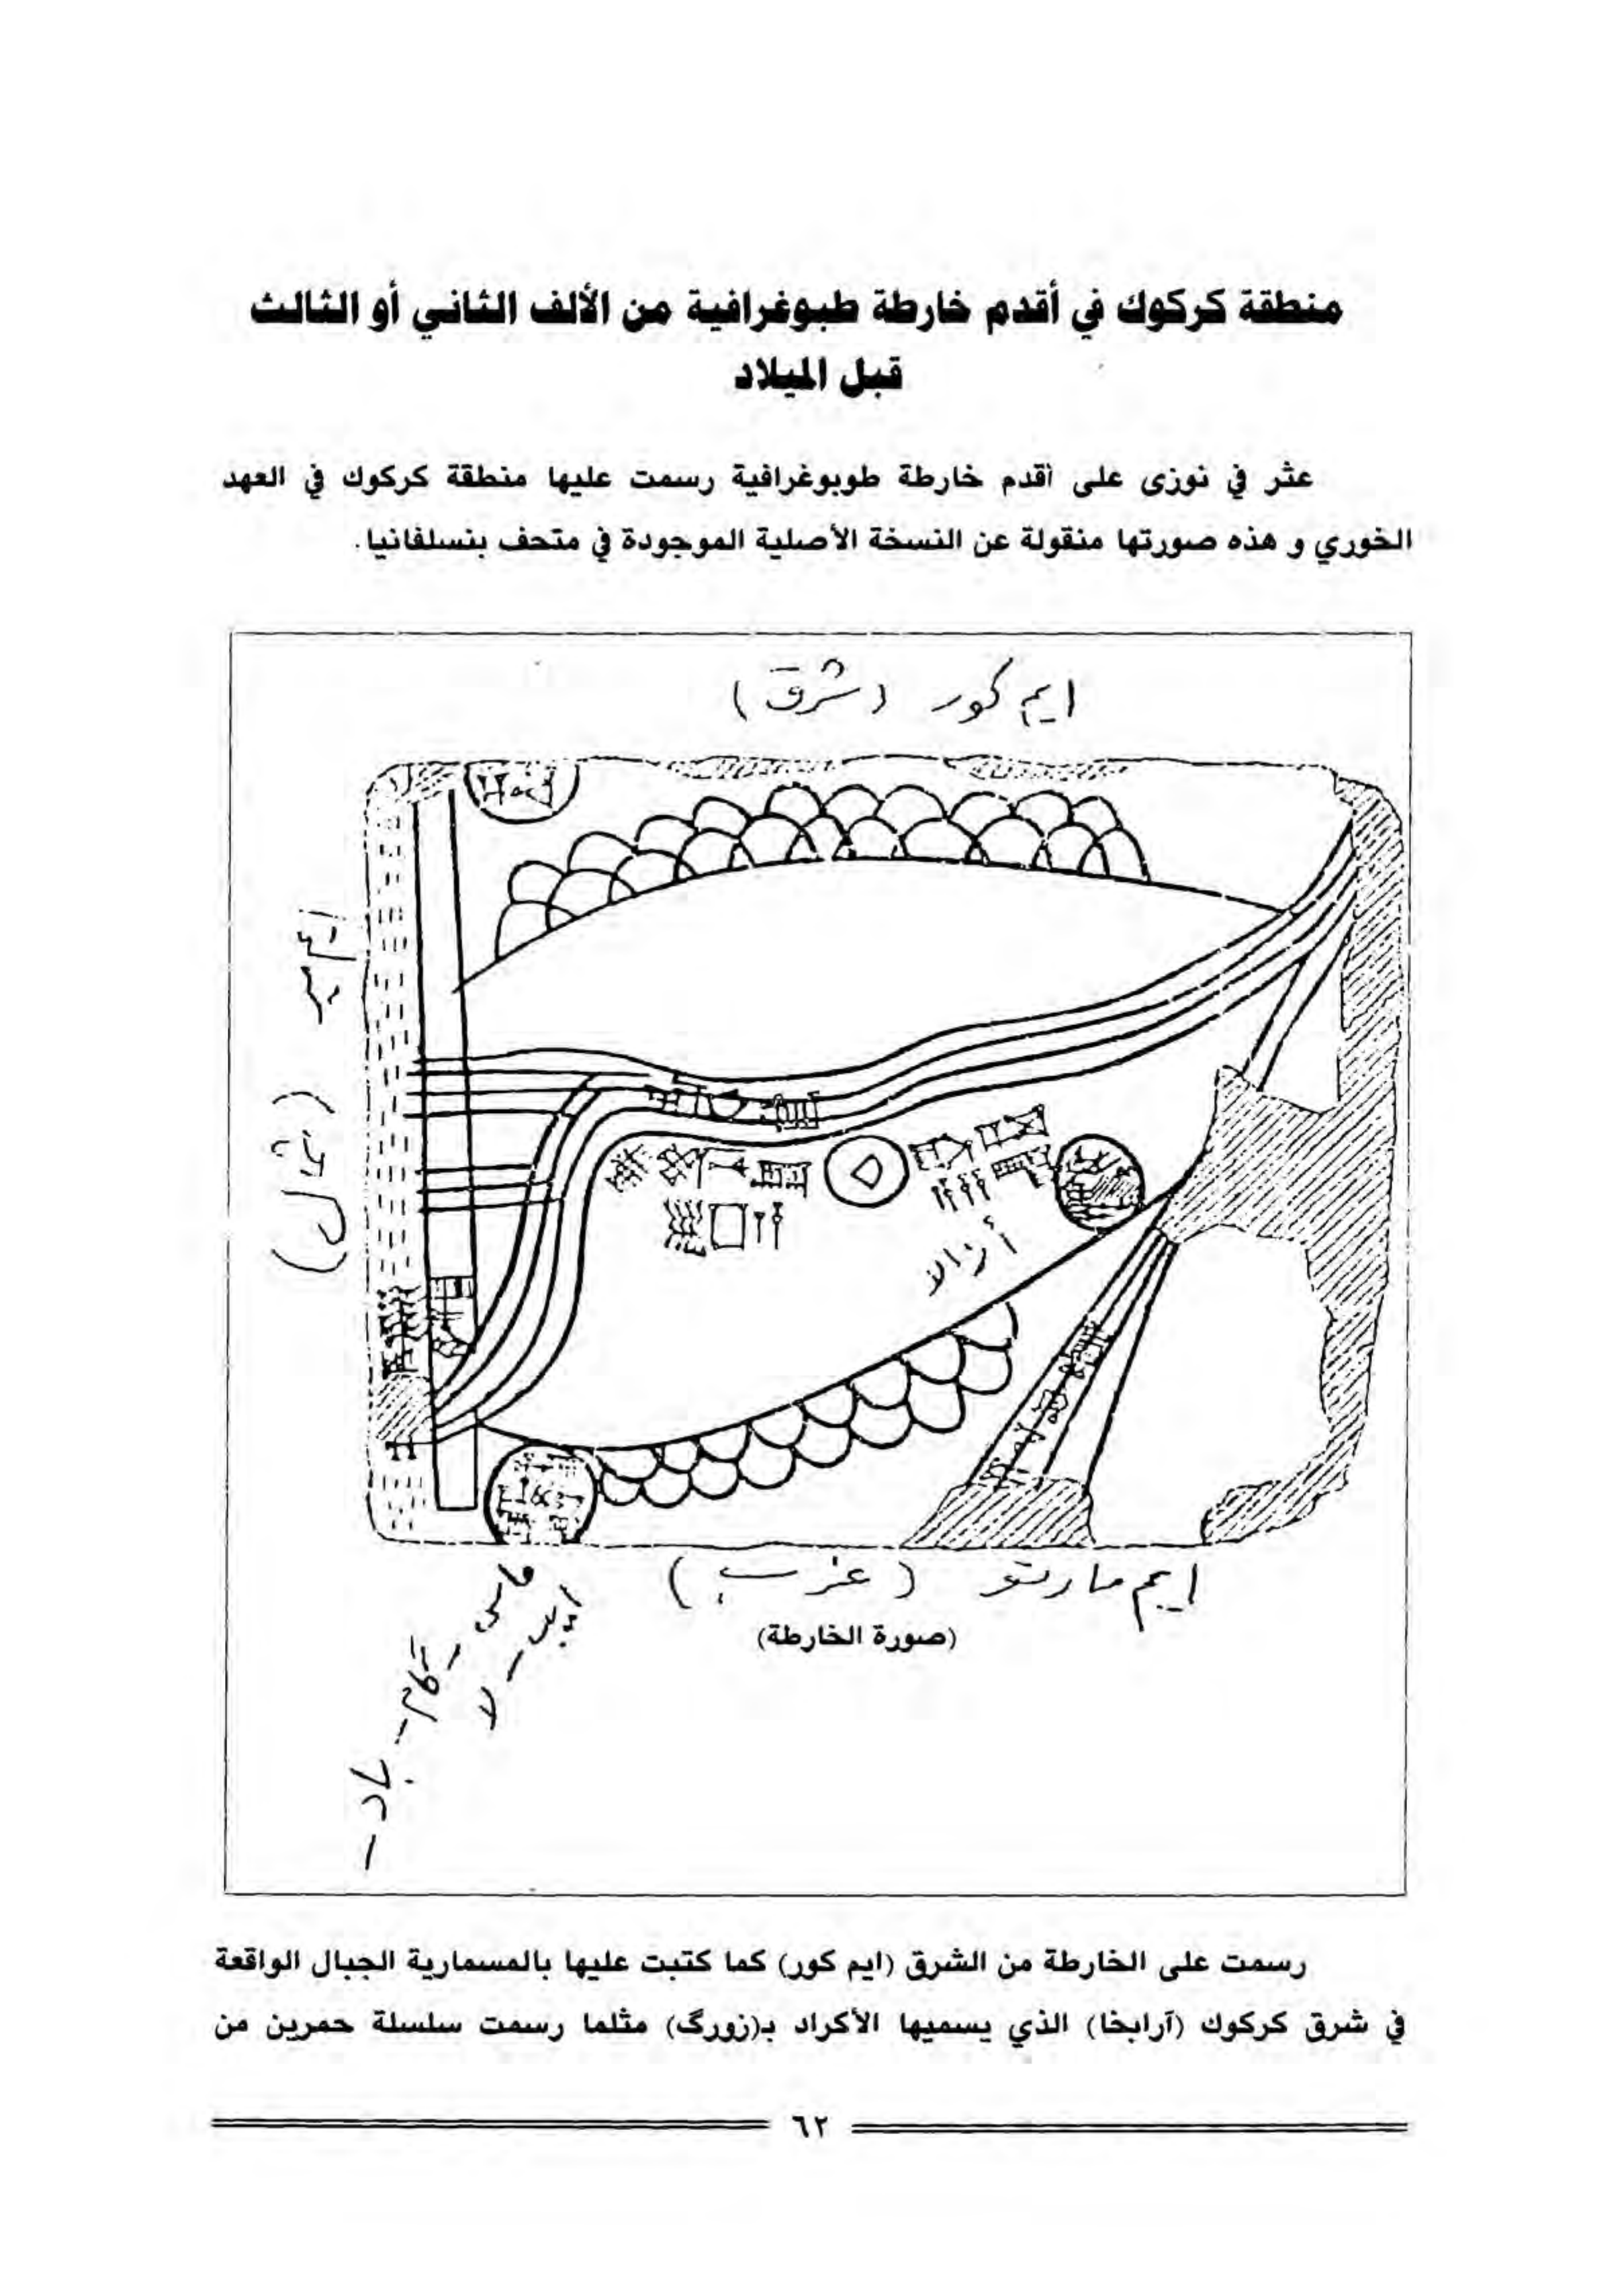 منطقة كركوك في أقدم خارطة طبوغرافية من الألف الثاني أو الثالث
قبل الميلاد
عثر في نوزى على أقدم خارطة طوبوغرافية رسمت عليها منطقة كركوك في العهد
الخوري و هذه صورتها منقولة عن النسخة الأصلية الموجودة في متحف بنسلفانيا.
ايم كور (شرق)
(شمال)
أزالا
ايم مارتو (غرب)
(صورة الخارطة)
رسمت على الخارطة من الشرق (ايم كور) كما كتبت عليها بالمسمارية الجبال الواقعة
في شرق كركوك (آرابخا) الذي يسميها الأكراد بـ(زورگ) مثلما رسمت سلسلة حمرين من
٦٢